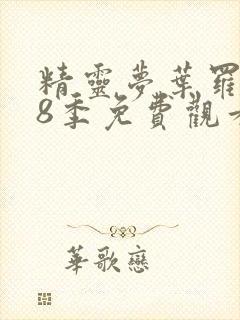 精靈夢葉羅
8季免費觀
華歌戀